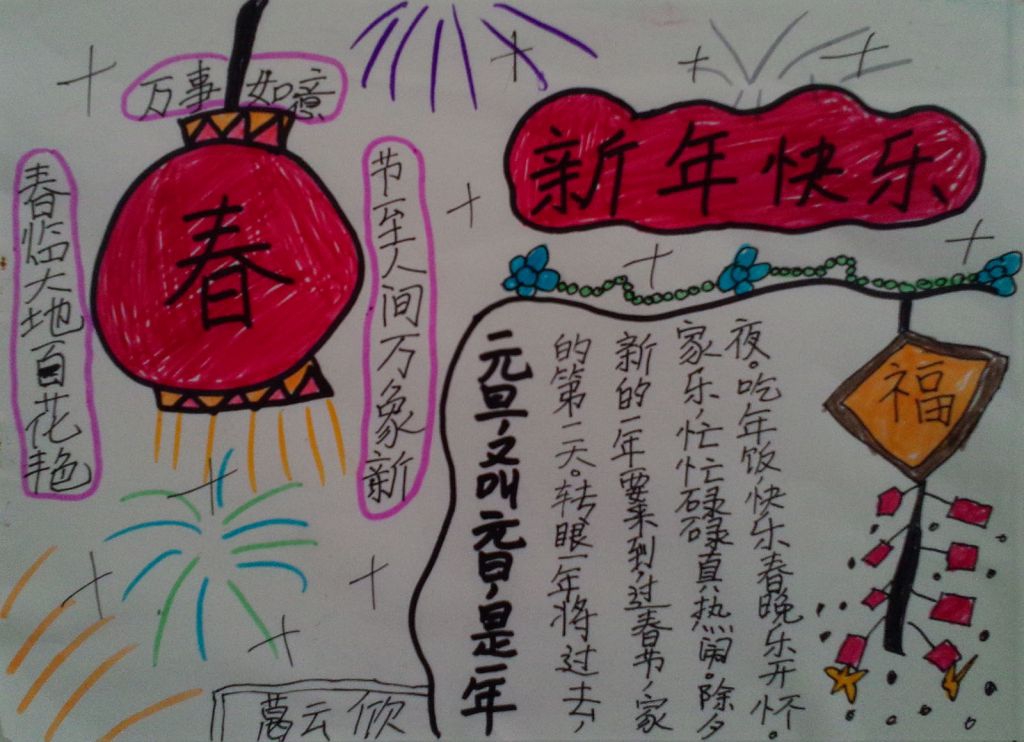 万事如意
春临大地百花艳
节至人间万象新
春
新年快乐
福
元旦,又叫元日,是一年
的第一天。转眼一年将过去,
新的一年要来到,过春节,家
家乐,忙忙碌碌真热闹。除夕
夜。吃年饭,快乐春晚乐开怀。
葛云欣